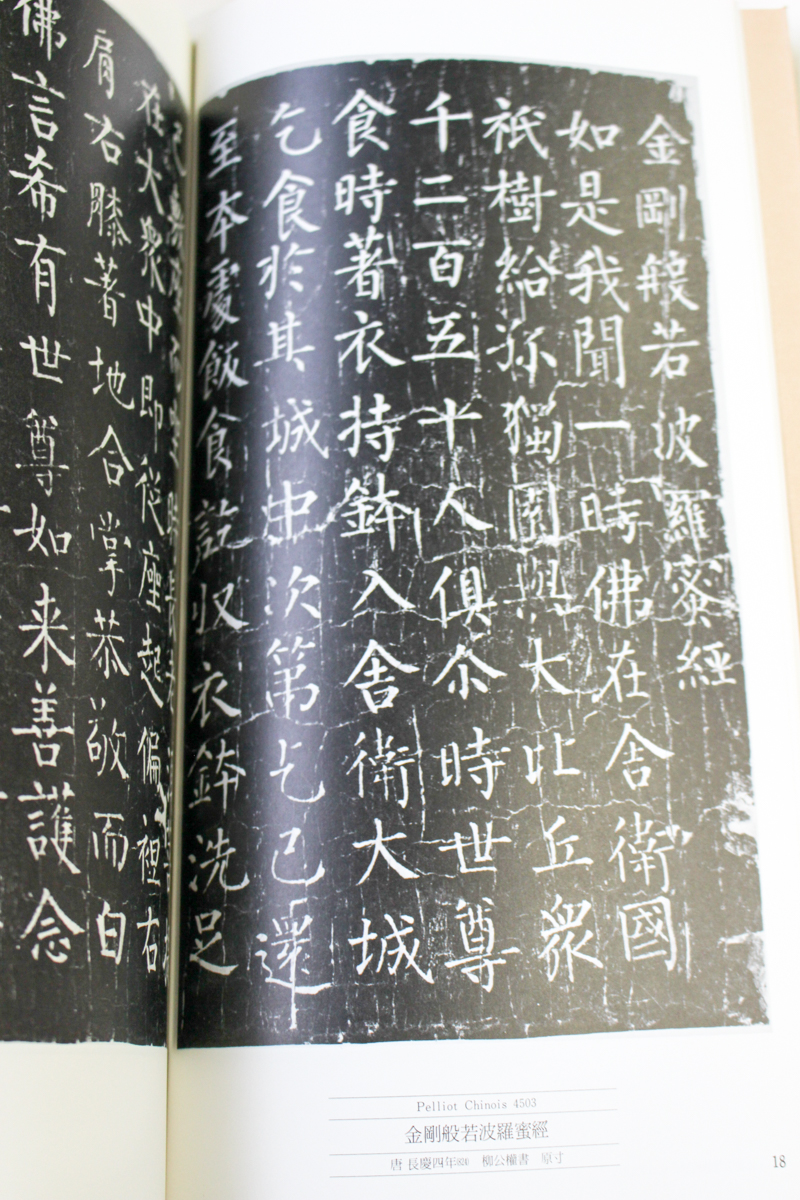 金剛般若波羅蜜經
如是我聞一時佛在舍衛國
祇樹給孤獨園與大比丘衆
千二百五十人俱尒時世尊
食時著衣持鉢入舍衛大城
乞食於其城中次第乞已還
至本處飯食訖收衣鉢洗足
在大衆中即從座起偏袒右
肩右膝著地合掌恭敬而白
佛言希有世尊如来善護念
Pelliot Chinois 4503
金剛般若波羅蜜經
唐 長慶四年824 柳公權書 原寸
18